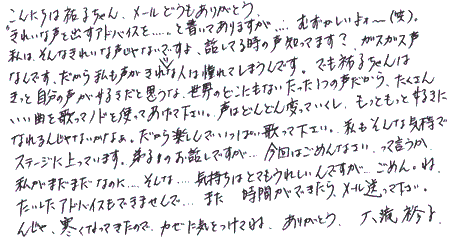 こんにちは祐子ちゃん、メールどうもありがとう。
きれいな声と出すアドバイスを……と書いてありますが……むずかしいよォー(笑)。
私は、そんなきれいな声じゃないですよ、話してる時の声知ってます？ガスガス声
なんです。だから私も声がきれいな人は憧れてしまうんです。でも祐子ちゃんは
きっと自分の声がやるきだと思うな、世界のどこにもない たった1つの声だから、たくさん
いい曲を歌ってノドを使ってあげて下さい。声はどんどん変っていくし、もっともっと好きに
なれるんじゃないかなぁ。だから楽しんでいっぱい歌って下さい。私もそんな気持で
ステージに上っています。弟子のお話しですが…今回はごめんなさい、って言うか
私がまだまだなのに…、そんな……気持ちはとてもうれしいんですが…ごめん。ね、
たいしたアドバイスもできませんで…また 時間ができたら、メール送って下さい。
んじゃ、寒くなってきたので、カゼに気をつけてね。ありがとう。